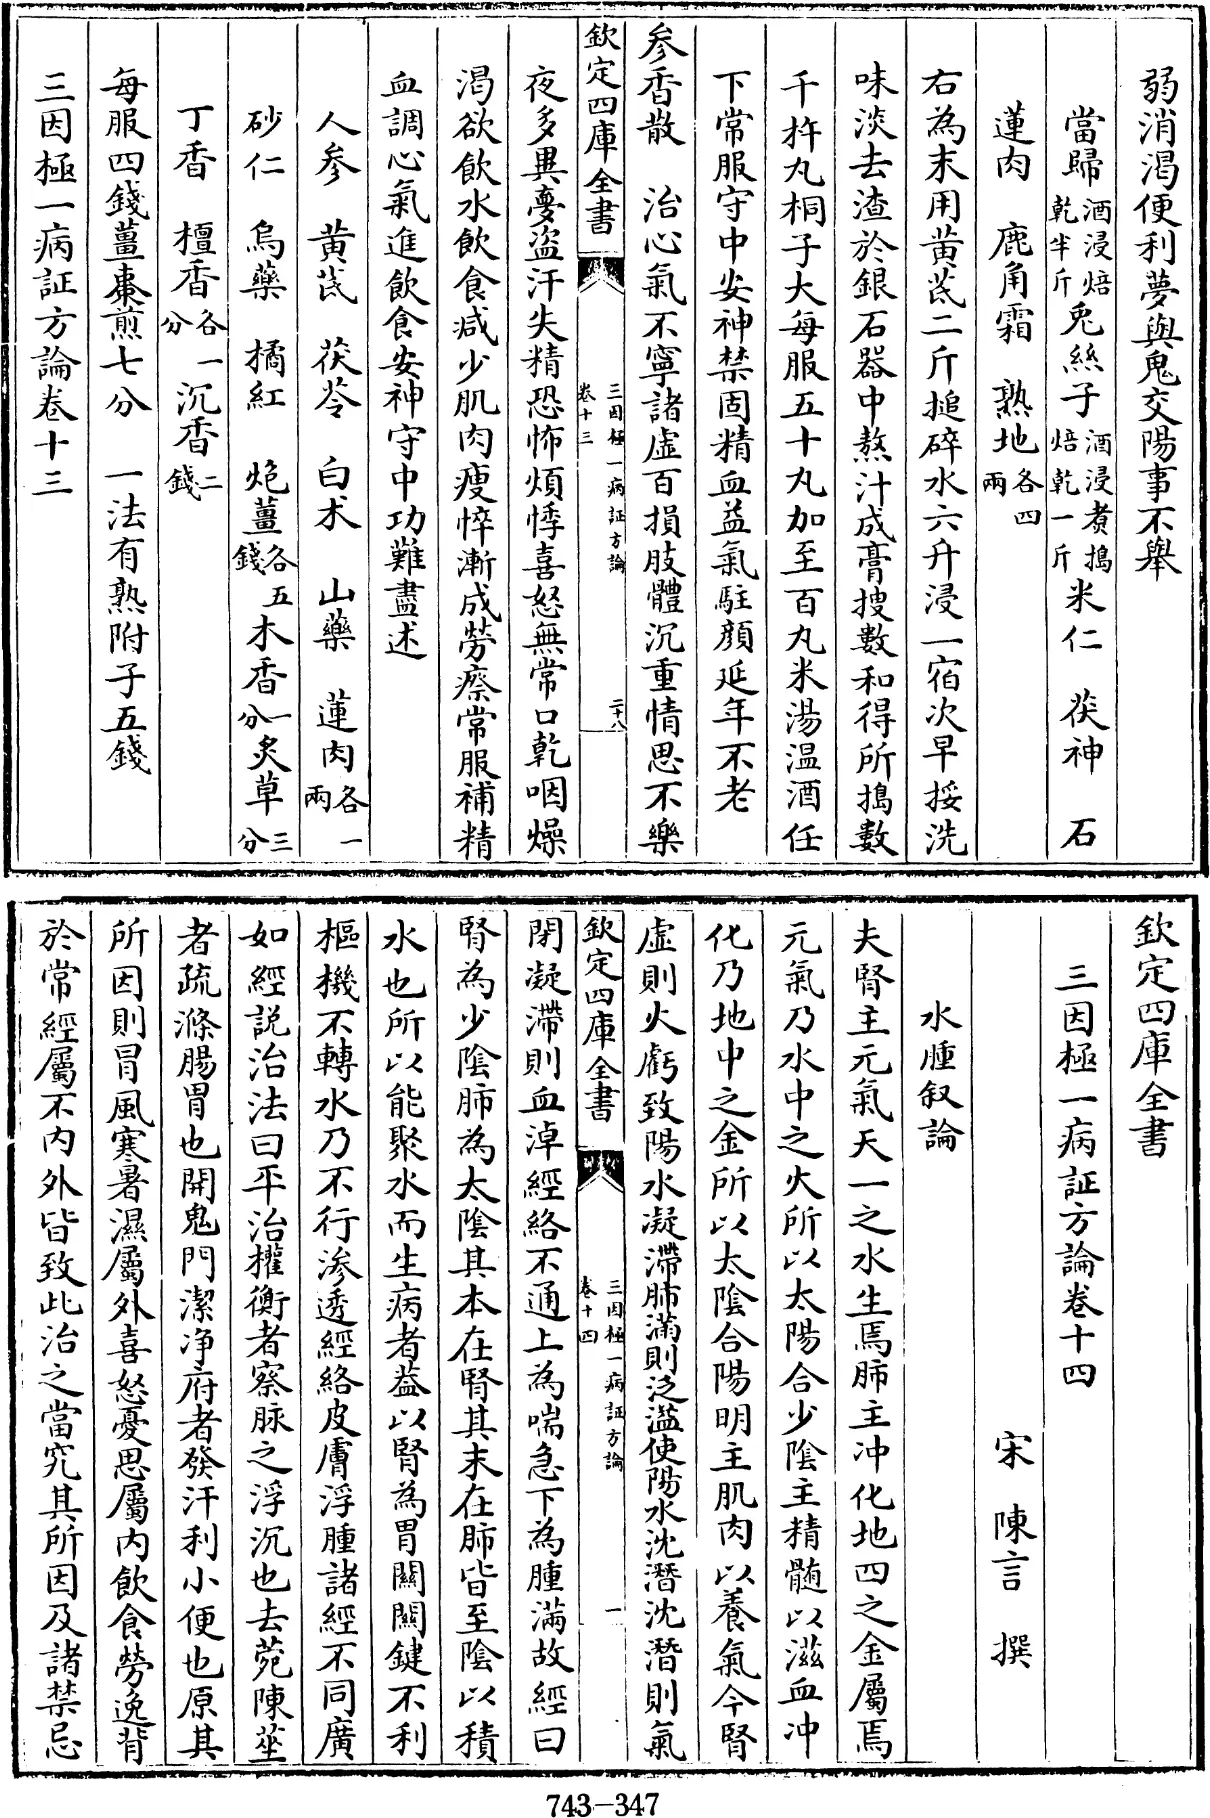 弱消渴便利夢與鬼交陽事不舉
當歸酒浸焙乾半斤兎絲子酒浸煑搗焙乾一斤米仁 茯神 石
蓮肉 鹿角霜 熟地各四兩
右為末用黄芪二斤搥碎水六升浸一宿次早挼洗
味淡去渣於銀石器中熬汁成膏搜數和得所搗數
千杵丸桐子大每服五十丸加至百丸米湯温酒任
下常服守中安神禁固精血益氣駐顔延年不老
参香散 治心氣不寧諸虛百損肢體沉重情思不樂
欽定四庫全書 三因極一病証方論卷十三 二十八
夜多異夢盜汗失精恐怖煩悸喜怒無常口乾咽燥
渴欲飲水飲食減少肌肉瘦悴漸成勞瘵常服補精
血調心氣進飲食安神守中功難盡述
人参 黄芪 茯苓 白朮 山藥 蓮肉各一兩
砂仁 烏藥 橘紅 炮薑各五錢木香一分炙草三分
丁香 檀香各一分沉香二錢
每服四錢薑棗煎七分 一法有熟附子五錢
三因極一病証方論卷十三
欽定四庫全書
三因極一病証方論卷十四
宋 陳言 撰
水腫叙論
夫腎主元氣天一之水生焉肺主冲化地四之金屬焉
元氣乃水中之火所以太陽合少陰主精髓以滋血冲
化乃地中之金所以太陰合陽明主肌肉以養氣今腎
虛則火虧致陽水凝滯肺滿則泛溢使陽水沈潛沈潛則氣
欽定四庫全書 三因極一病証方論卷十四 一
閉凝滯則血淖經絡不通上為喘急下為腫滿故經曰
腎為少陰肺為太陰其本在腎其末在肺皆至陰以積
水也所以能聚水而生病者葢以腎為胃關關鍵不利
樞機不轉水乃不行滲透經絡皮膚浮腫諸經不同廣
如經説治法曰平治權衡者察脉之浮沉也去菀陳莝
者疏滌腸胃也開鬼門潔净府者發汗利小便也原其
所因則冒風寒暑濕屬外喜怒憂思屬内飲食勞逸背
於常經屬不内外皆致此治之當究其所因及諸禁忌
743-347